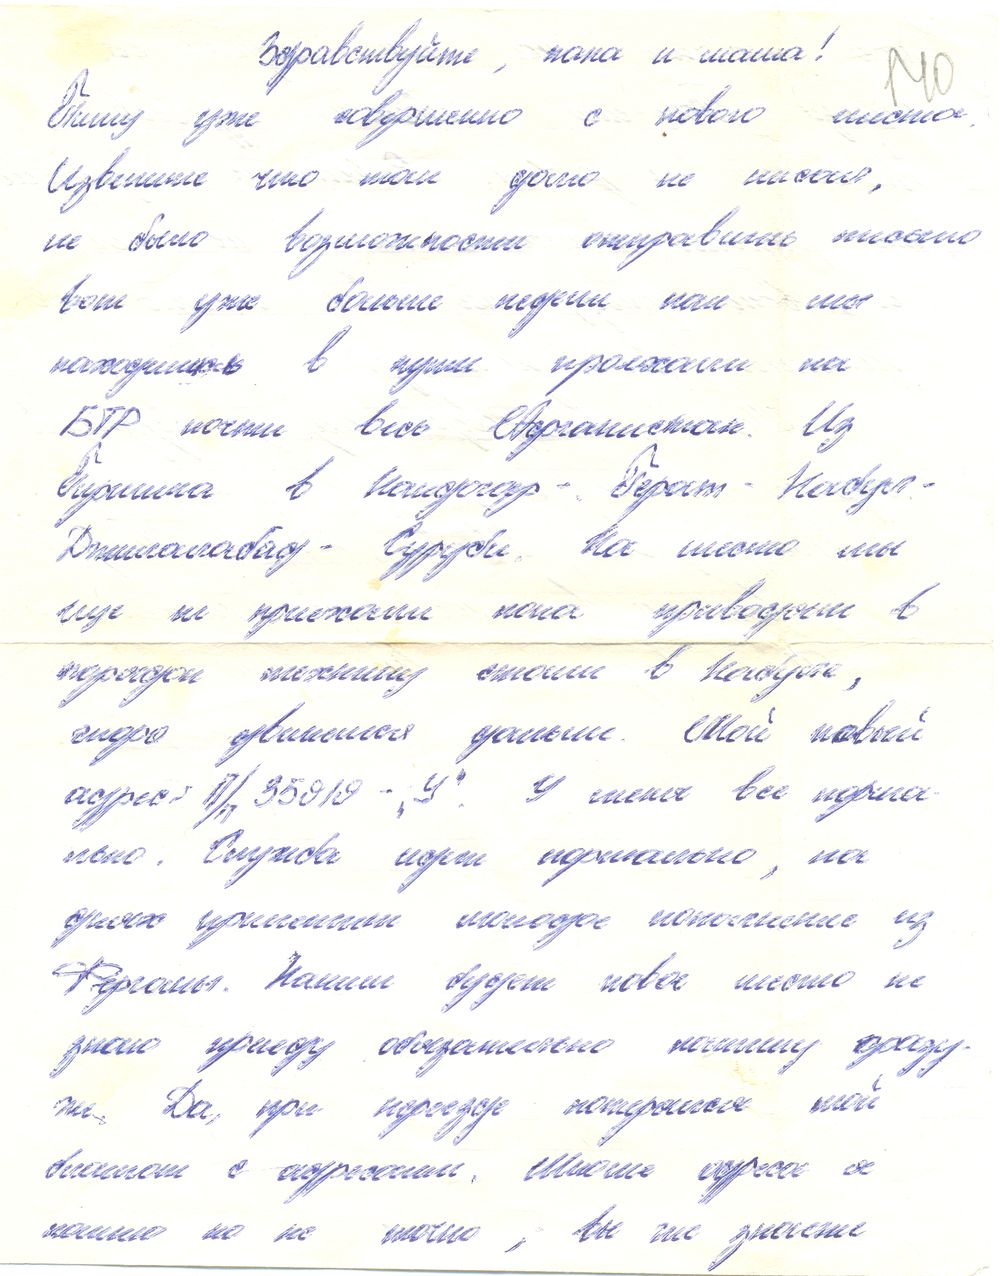 Здравствуйте, папа и мама!
140
Пишу уже совершенно с нового места.
Извените что так долго не писал,
не было возможности отправить письмо
вот уже больше недели как мы
находимся в пути проехали на
БТР почти весь Афганистан. Из
Гиришка в Кандагар - Герат - Кабул -
Джилалабад - Суруби. На место мы
еще не приехали пока приводим в
порядок технику стоим в Кабуле,
скоро двинемся дальше. Мой новый
адрес: П/п 35919 - "У". У меня все норма-
льно. Служба идет нормально, на
днях привезли молодое пополнение из
Ферганы. Каким будет новое место не
знаю приеду обязательно напишу сразу-
же. Да, при переезде потерялся мой
блокнот с адресами. Многие адреса я
помню но не точно, вы же знаете